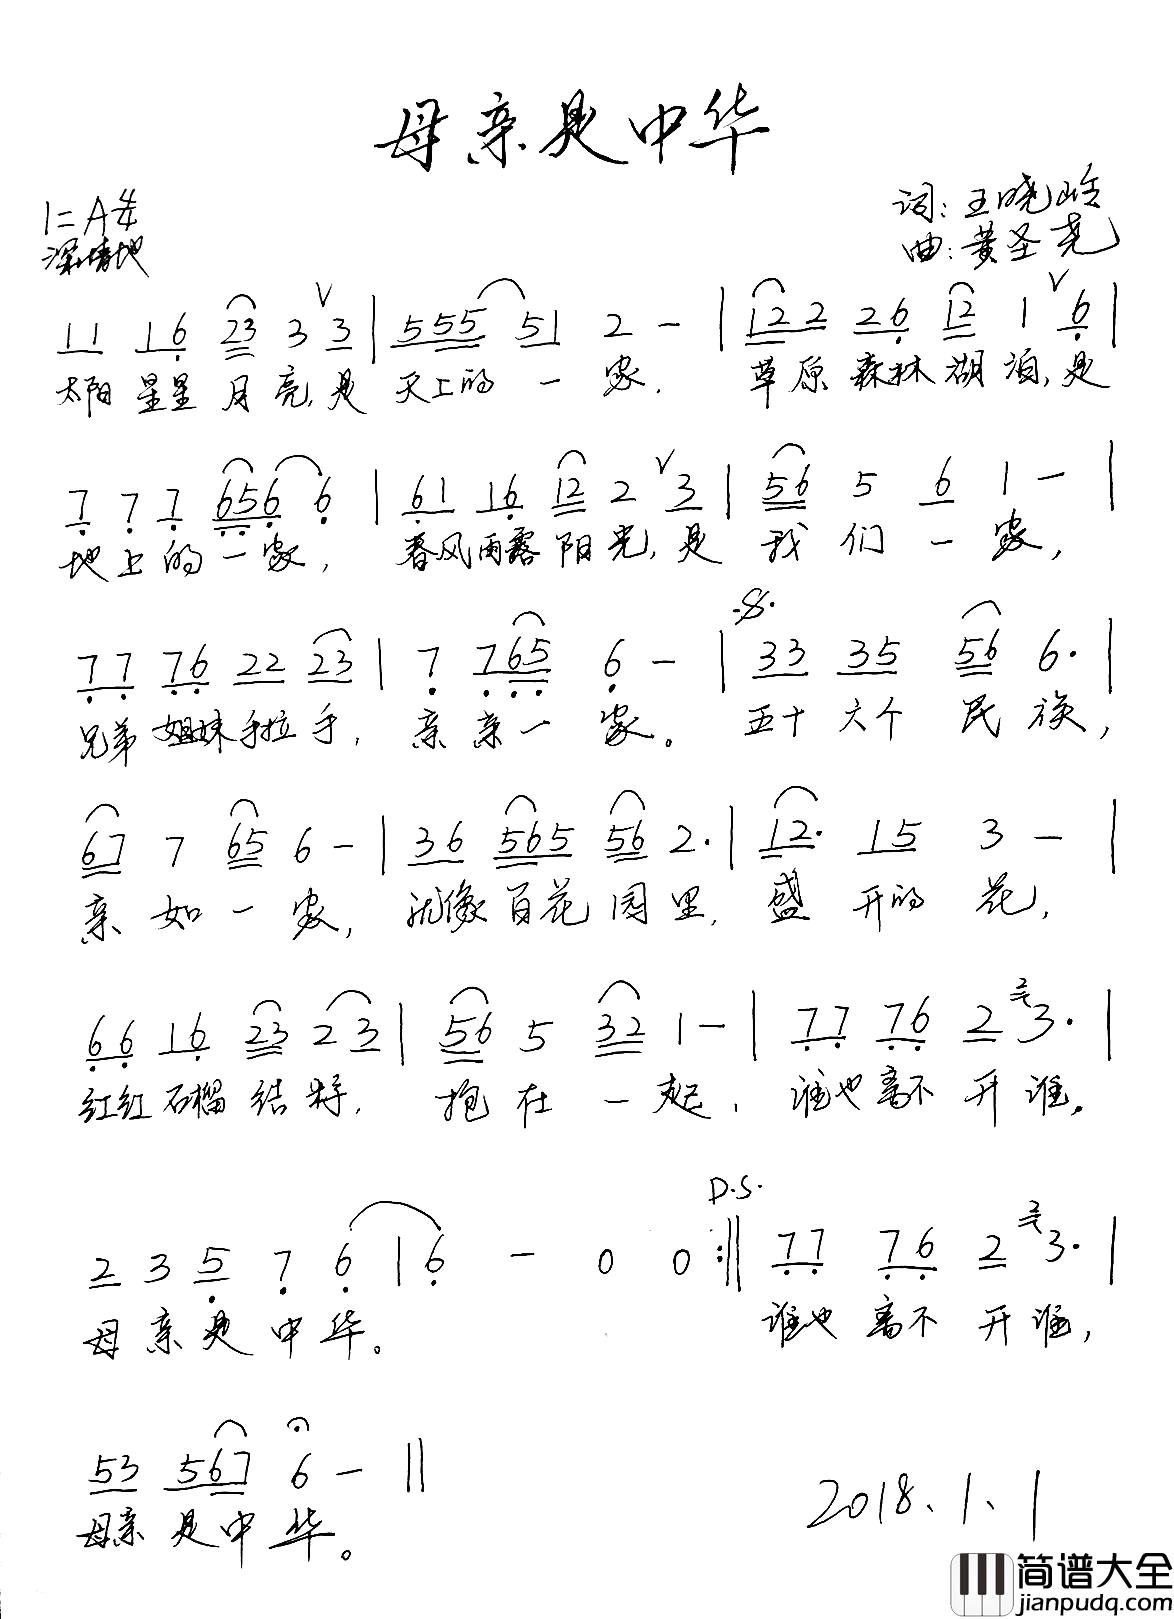 母亲是中华
1=A 4/4
深情地
词:王晓岭
曲:黄圣尧
11 16 23 3 3 | 555 51 2 - | 122 26 12 1 6 |
太阳 星星 月亮,是 天上的一家. 草原森林湖泊,是
7 7 7 656 6 | 61 16 12 2 3 | 56 5 6 1 - |
地上的一家, 春风雨露阳光,是 我们一家,
77 76 22 23 | 7 765 6 - | 33 35 56 6· |
兄弟姐妹手拉手, 亲亲一家。 五十六个民族,
67 7 65 6 - | 36 565 56 2· | 12· 15 3 - |
亲如一家, 就像百花园里, 盛开的花,
66 16 23 2 3 | 56 5 32 1 - | 77 76 2 2 3· |
红红石榴结籽, 抱在一起, 谁也离不开谁。
D.S.
2 3 5 7 6 | 6 - 0 0 :|| 77 76 2 2 3· |
母亲是中华。 谁也离不开谁,
53 567 6 - ||
母亲是中华。
2018.1.1
简谱大全
jianpudq.com